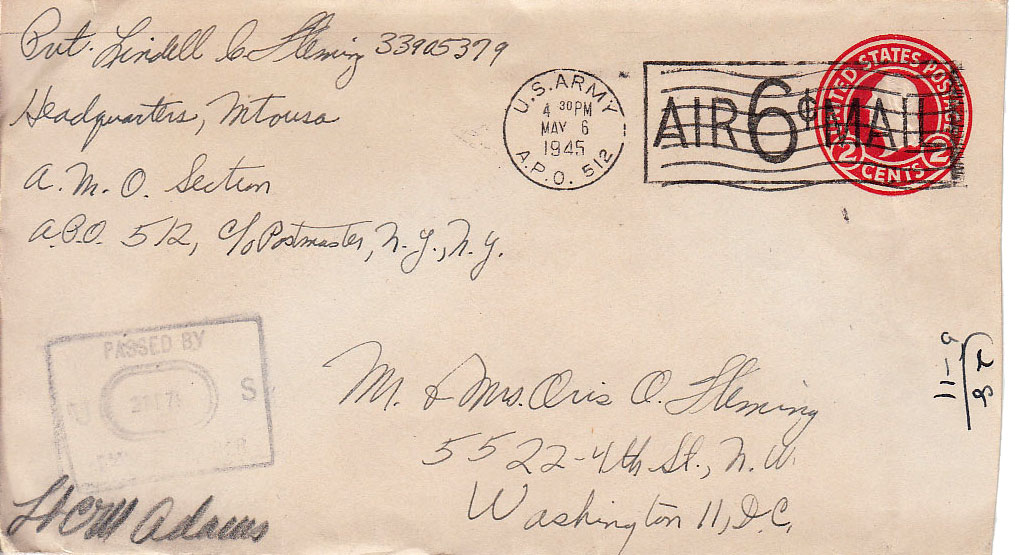 Pvt. Lindell C. Fleming 33905379
Headquarters, Mtousa
A.M.O. Section
A.P.O. 512, c/o Postmaster, N.Y., N.Y.
U.S. ARMY
4 30 PM
MAY 6
1945
A.P.O. 512
AIR 6¢ MAIL
UNITED STATES POSTAGE
2 CENTS 2
PASSED BY
S
Mr. & Mrs. Oris O. Fleming
5522-4th St., N.W.
Washington 11, D.C.
Lt CM Adams
11-9